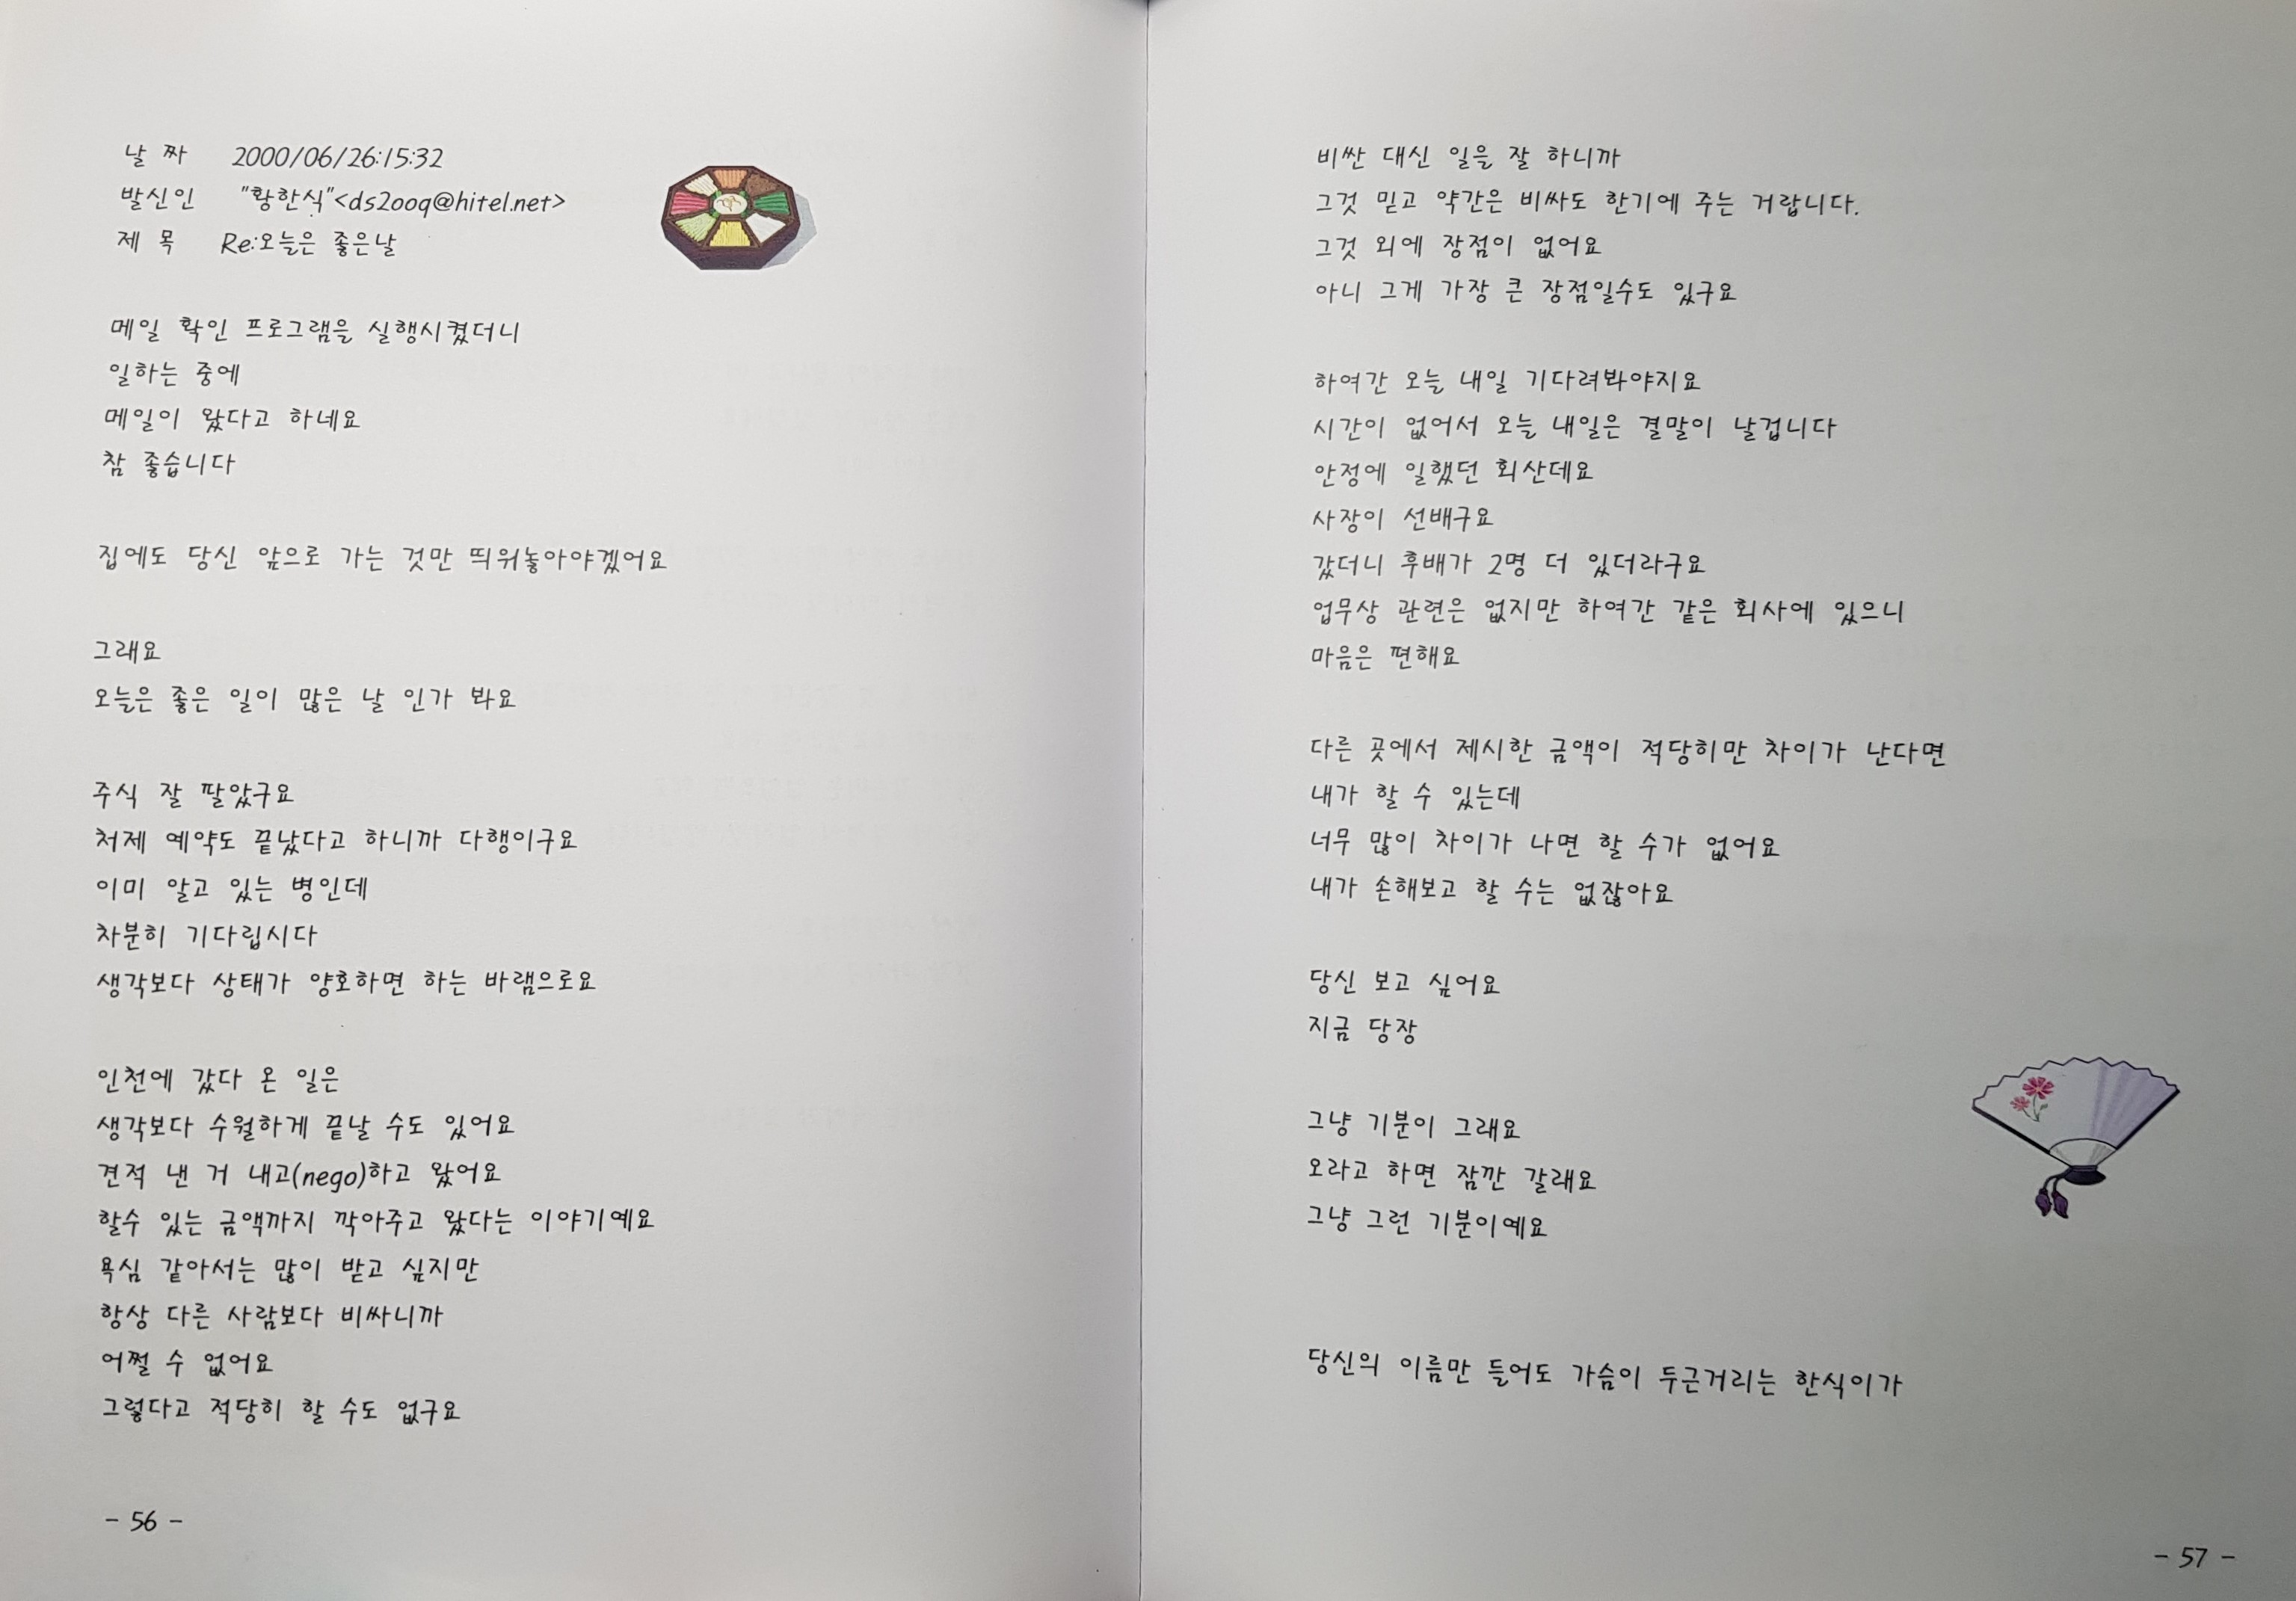 날 짜 2000/06/26:15:32
발신인 "황한식"<ds2ooq@hitel.net>
제 목 Re:오늘은 좋은날
메일 확인 프로그램을 실행시켰더니
일하는 중에
메일이 왔다고 하네요
참 좋습니다
집에도 당신 앞으로 가는 것만 띄워놓아야겠어요
그래요
오늘은 좋은 일이 많은 날 인가 봐요
주식 잘 팔았구요
처제 예약도 끝났다고 하니까 다행이구요
이미 알고 있는 병인데
차분히 기다립시다
생각보다 상태가 양호하면 하는 바램으로요
인천에 갔다 온 일은
생각보다 수월하게 끝날 수도 있어요
견적 낸 거 내고(nego)하고 왔어요
할수 있는 금액까지 깍아주고 왔다는 이야기예요
욕심 같아서는 많이 받고 싶지만
항상 다른 사람보다 비싸니까
어쩔 수 없어요
그렇다고 적당히 할 수도 없구요
- 56 -
비싼 대신 일을 잘 하니까
그것 믿고 약간은 비싸도 한기에 주는 거랍니다.
그것 외에 장점이 없어요
아니 그게 가장 큰 장점일수도 있구요
하여간 오늘 내일 기다려봐야지요
시간이 없어서 오늘 내일은 결말이 날겁니다
안정에 일했던 회산데요
사장이 선배구요
갔더니 후배가 2명 더 있더라구요
업무상 관련은 없지만 하여간 같은 회사에 있으니
마음은 편해요
다른 곳에서 제시한 금액이 적당히만 차이가 난다면
내가 할 수 있는데
너무 많이 차이가 나면 할 수가 없어요
내가 손해보고 할 수는 없잖아요
당신 보고 싶어요
지금 당장
그냥 기분이 그래요
오라고 하면 잠깐 갈래요
그냥 그런 기분이예요
당신의 이름만 들어도 가슴이 두근거리는 한식이가
- 57 -